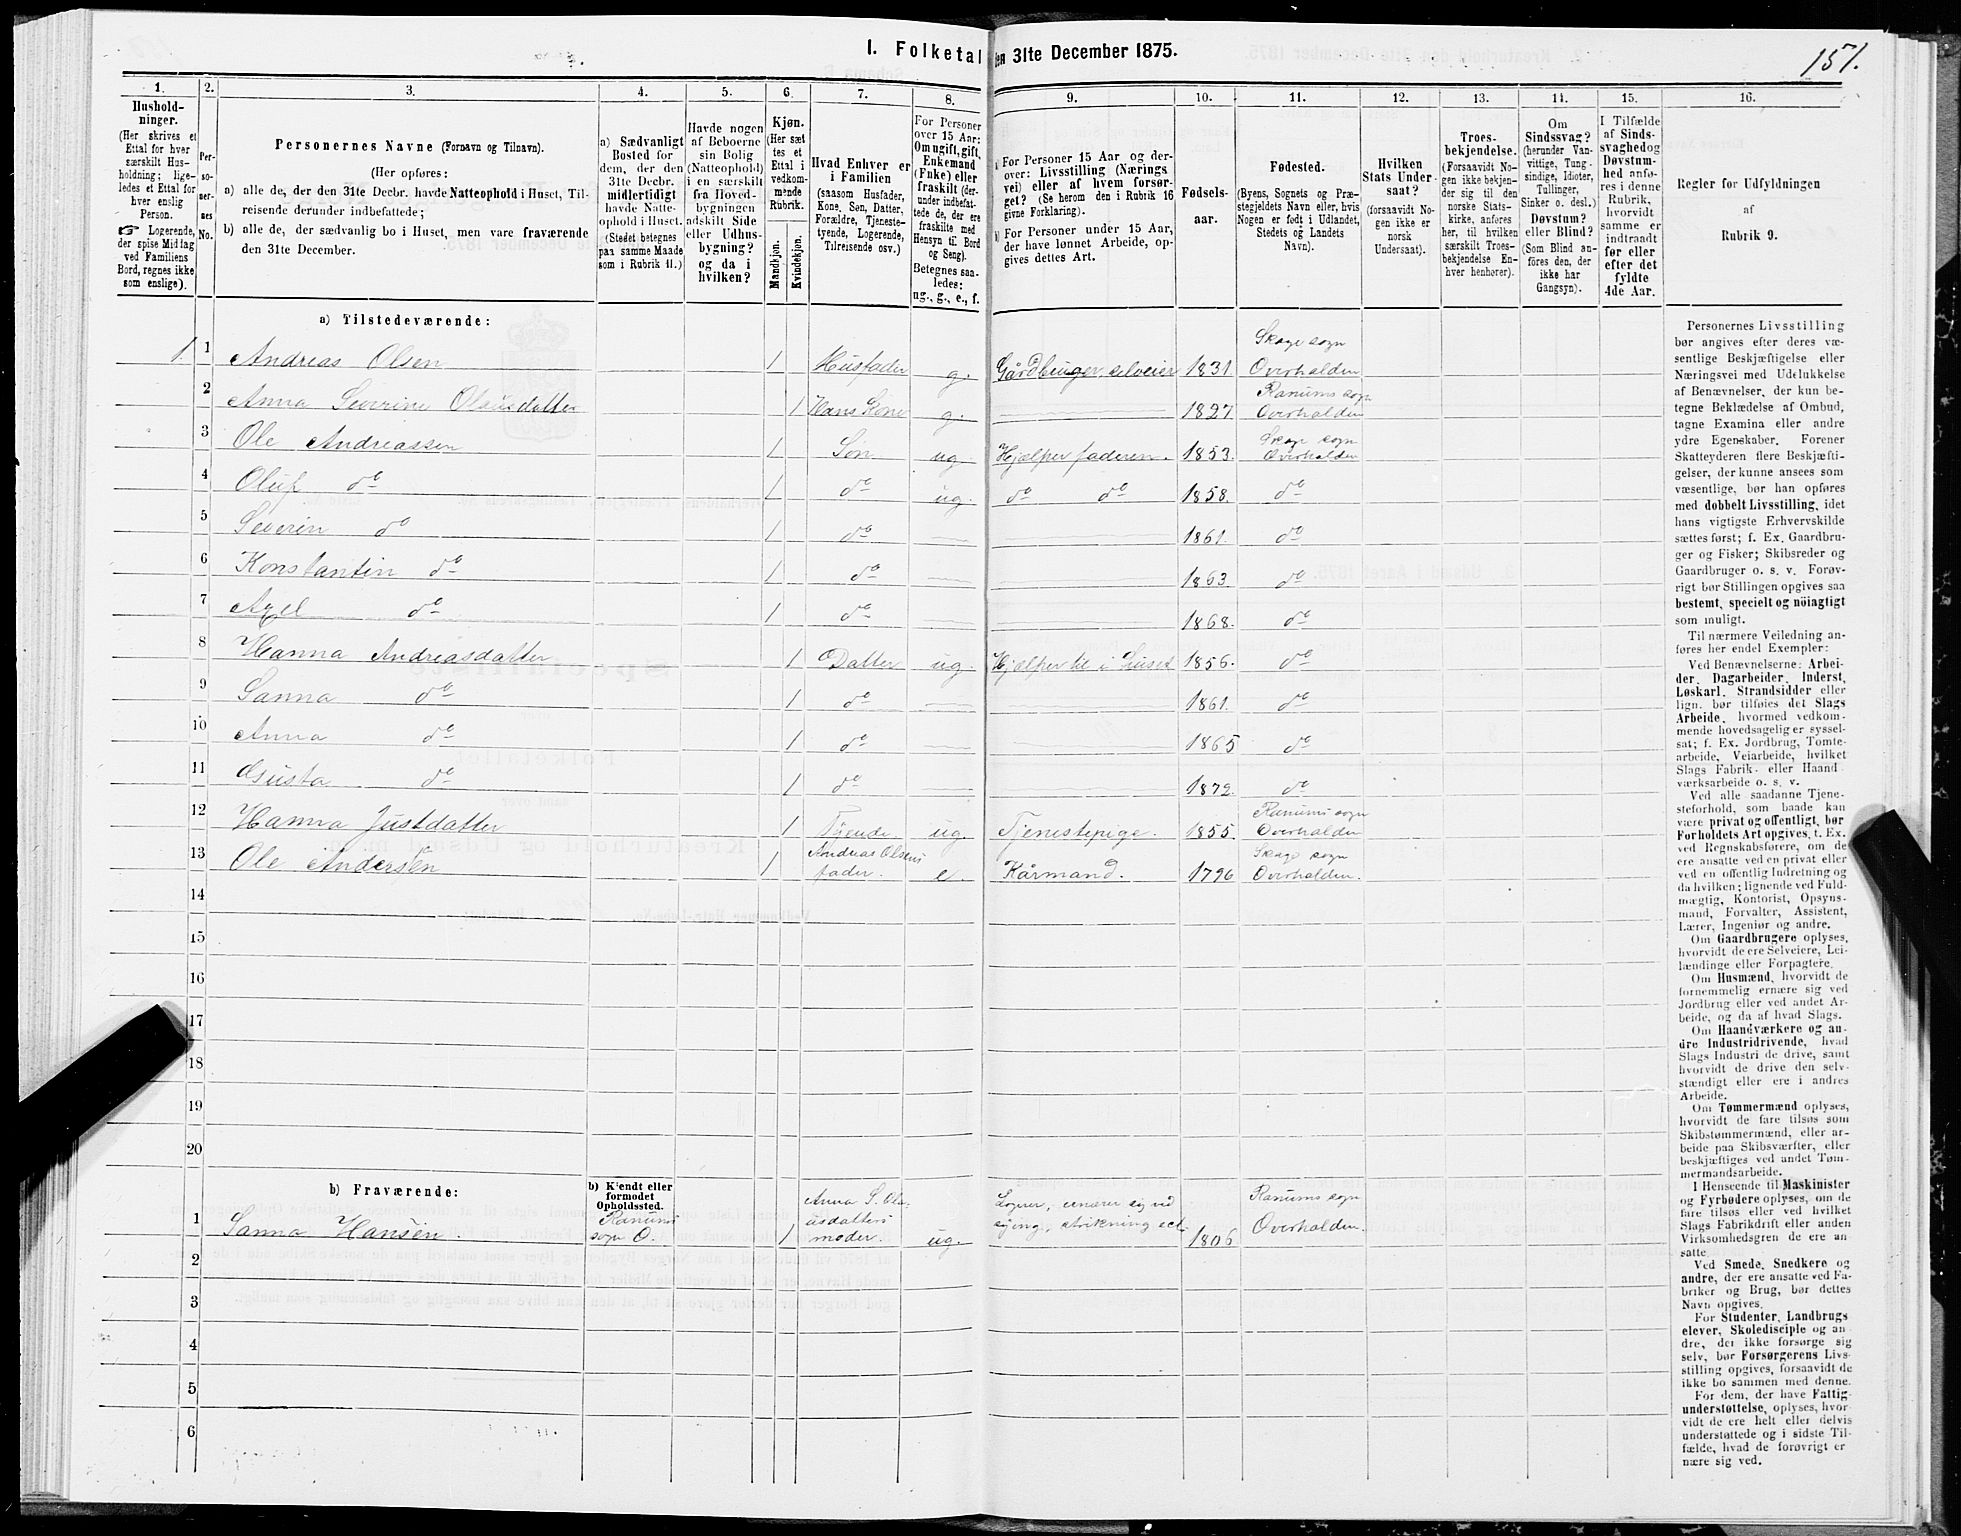 I. Folketal den 31te December 1875.
151.
1. 2. 3. 4. 5. 6. 7. 8. 9. 10. 11. 12. 13. 14. 15. 16.
Hushold-
ninger.
(Her skrives et
Ettal for hver
særskilt Hus-
holdning; lige-
ledes et Ettal for
hver enslig
Person.
☞ Logerende,
der spise Middag
ved Familiens
Bord, regnes ikke
som enslige).
Per-
so-
ner-
nes
No.
Personernes Navne (Fornavn og Tilnavn).
(Her opføres:
a) alle de, der den 31te Decbr. havde Natteophold i Huset, Til-
reisende derunder indbefattede;
b) alle de, der sædvanlig bo i Huset, men vare fraværende
den 31te December.
a) Sædvanligt
Bosted for
dem, der den
31te Decbr.
midlertidigt
havde Natte-
ophold i Huset.
(Stedet betegnes
paa samme Maade
som i Rubrik 11.)
Havde nogen
af Beboerne
sin Bolig
(Natteophold)
i en særskilt
fra Hoved-
bygningen
adskilt Side
eller Udhus-
bygning?
og da i
hvilken?
Kjøn.
(Her sæt
tes et
Ettal i
vedkom-
mende
Rubrik.
Mandkjøn.
Kvindekjøn.
Hvad Enhver er
i Familien
(saasom Husfader,
Kone, Søn, Datter,
Forældre, Tjeneste-
tyende, Logerende,
Tilreisende osv.)
For Personer
over 15 Aar:
Om ugift, gift,
Enkemand
(Enke) eller
fraskilt (der-
under indbefat-
tede de, der ere
fraskilte med
Hensyn til Bord
og Seng).
Betegnes saa-
ledes:
ug., g., e., f.
a) For Personer 15 Aar og der-
over: Livsstilling (Nærings
vei) eller af hvem forsør-
get? (Se herom den i Rubrik 16
givne Forklaring).
b) For Personer under 15 Aar,
der have lønnet Arbeide, op-
gives dettes Art.
Fødsels-
aar.
Fødested.
(Byens, Sognets og Præ-
stegjeldets Navn eller, hvis
Nogen er født i Udlandet,
Stedets og Landets
Navn).
Hvilken
Stats Under-
saat?
(forsaavidt No-
gen ikke er
norsk
Undersaat).
Troes-
bekjendelse.
(Forsaavidt No-
gen ikke bekjen-
der sig til den
norske Stats-
kirke, anføres
her, til hvilken
særskilt Troes-
bekjendelse En-
hver henhører).
Om
Sindssvag?
(herunder Van-
vittige, Tung-
sindige, Idioter,
Tullinger,
Sinker o. desl.)
Døvstum?
eller Blind?
(Som Blind an-
føres den, der
ikke har
Gangsyn).
I Tilfælde
af Sinds-
svaghed og
Døvstum-
hed anfø-
res i denne
Rubrik,
hvorvidt
samme er
indtraadt
før eller
efter det
fyldte
4de Aar.
Regler for Udfyldningen
af
Rubrik 9.
a) Tilstedeværende:
1. 1 Andreas Olsen 1 Husfader g. Gårdbruger, selveier 1831. Skage sogn Overhalden
2 Anna Severine Olausdatter 1 Hans Kone g. 1827. Ranums sogn Overhalden
3 Ole Andreassen 1 Søn ug. Hjælper faderen. 1853. Skage sogn Overhalden
4 Oluf do 1 do ug. do do 1858. do
5 Severin do 1 do 1861. do
6 Konstantin do 1 do 1863. do
7 Axel do 1 do 1868. do
8 Hanna Andreasdatter 1 Datter ug. Hjælper til i huset 1856. do
9 Sanna do 1 do 1861. do
10 Anna do 1 do 1865 do
11 Gusta do 1 do 1872. do
12 Hanna Justdatter 1 Tyende. ug. Tjenestepige. 1855. Ranums sogn Overhalden
13 Ole Andersen 1 Andreas Olsens fader. e Kårmand. 1796 Skage sogn Overhalden.
14
15
16
17
18
19
20
b) Fraværende:
b) Kjendt eller
formodet
Opholdssted.
1 Sanna Hansen. Ranums sogn O. 1 Anna S. Olausdatters moder. ug. Logerer, ernærer sig ved sying, strikning ect. 1806 Ranums sogn Overhalden.
2
3
4
5
6
Personernes Livsstilling
bør angives efter deres væ-
sentlige Beskjæftigelse eller
Næringsvei med Udelukkelse
af Benævnelser, der kun be-
tegne Beklædelse af Ombud,
tagne Examina eller andre
ydre Egenskaber. Forener
Skatteyderen flere Beskjæfti-
gelser, der kunne ansees som
væsentlige, bør han opføres
med dobbelt Livsstilling, idet
hans vigtigste Erhvervskilde
sættes først; f. Ex. Gaardbru-
ger og Fisker; Skibsreder og
Gaardbruger o. s. v. Forøv-
rigt bør Stillingen opgives saa
bestemt, specielt og nöiagtigt
som muligt.
Til nærmere Veiledning an-
føres her endel Exempler:
Ved Benævnelserne: Arbei-
der, Dagarbeider, Inderst,
Løskarl, Strandsidder eller
lign. bør tilføies det Slags
Arbeide, hvormed vedkom-
mende hovedsagelig er syssel-
sat; f. Ex. Jordbrug, Tomte-
arbeide, Veiarbeide, hvilket
Slags Fabrik- eller Haand-
værksarbeide o. s. v.
Ved alle saadanne Tjene-
steforhold, som baade kan
være privat og offentligt, bør
Forholdets Art opgives, t. Ex.
ved Regnskabsførere, om de
ere ansatte ved en privat eller
ved en offentlig Indretning og
da hvilken; lignende ved Fuld-
mægtig, Kontorist, Opsyns-
mand, Forvalter, Assistent,
Lærer, Ingeniør og andre.
Om Gaardbrugere oplyses,
hvorvidt de ere Selveiere, Lei-
lændinge eller Forpagtere.
Om Husmænd, hvorvidt de
fornemmelig ernære sig ved
Jordbrug eller ved andet Ar-
beide, og da af hvad Slags.
Om Haandværkere og an-
dre Industridrivende, hvad
Slags Industri de drive, samt
hvorvidt de drive den selv-
stændigt eller ere i andres
Arbeide.
Om Tømmermænd oplyses,
hvorvidt de fare tilsøs som
Skibstømmermænd, eller ar-
beide paa Skibsværfter, eller
beskjæftiges ved andet Tøm-
mermandsarbeide.
I Henseende til Maskinister
og Fyrbødere oplyses, om de
fare tilsøs eller ved hvilket
Slags Fabrikdrift eller anden
Virksomhedsgren de ere an-
satte.
Ved Smede, Snedkere og
andre, der ere ansatte ved Fa-
briker og Brug, bør dettes
Navn opgives.
For Studenter, Landbrugs
elever, Skoledisciple og an-
dre, der ikke forsørge sig
selv, bør Forsørgerens Livs-
stilling opgives, forsaavidt de
ikke bo sammen med denne.
For dem, der have Fattig-
understøttelse, oplyses, hvor-
vidt de ere helt eller delvis
understøttede og i sidste Til-
fælde, hvad de forøvrigt er
nære sig ved.